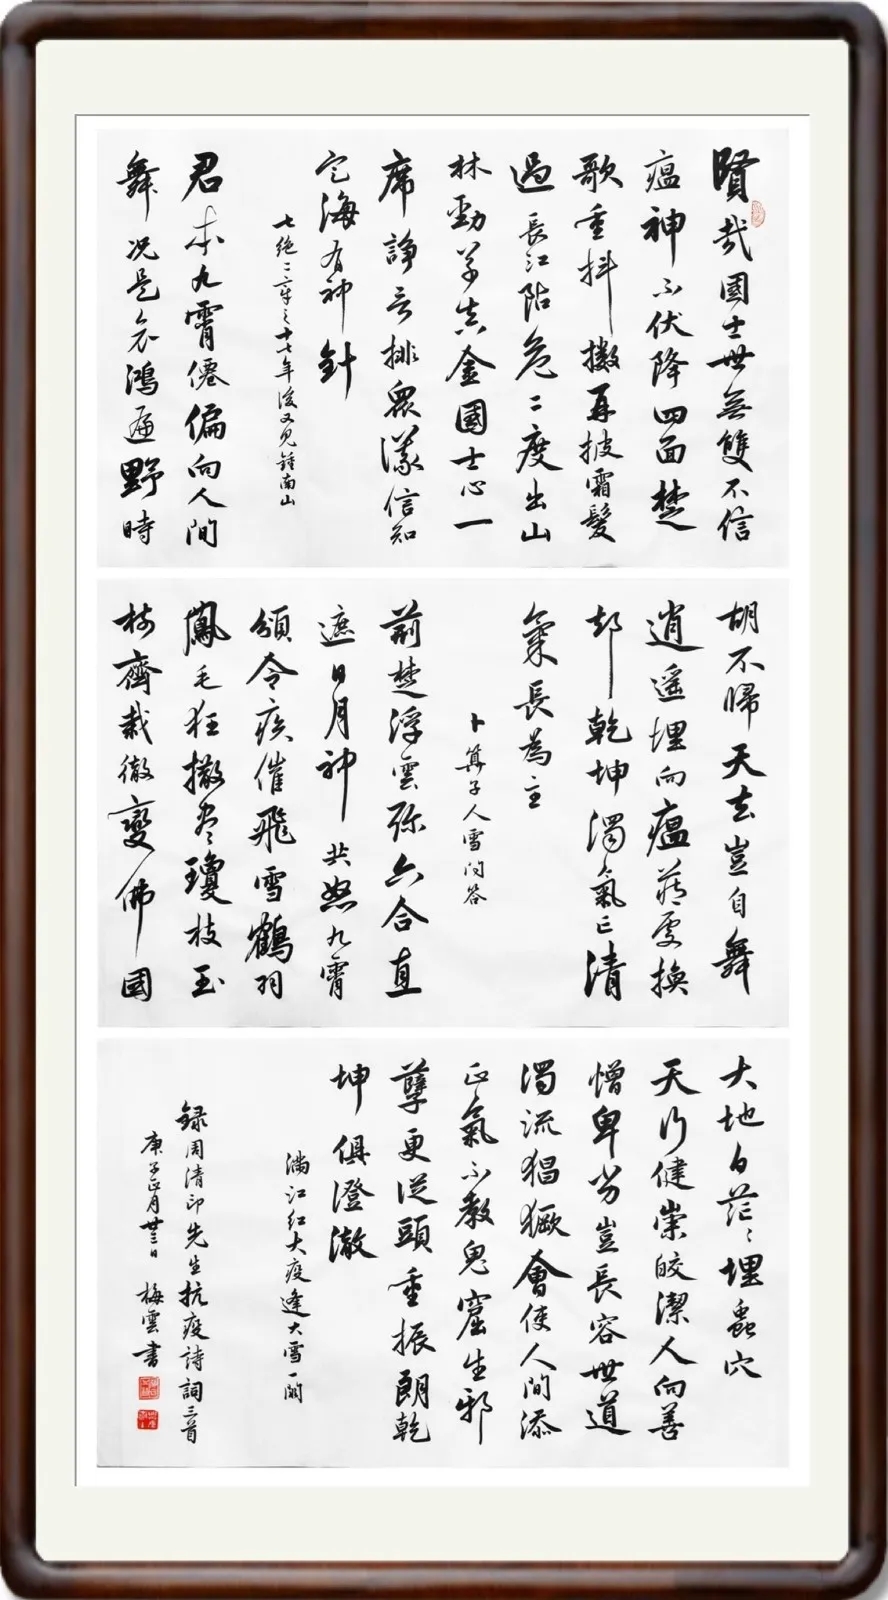 賢哉國士世無雙不信
瘟神不伏降四面楚
歌重抖擻再披霜髮
過長江阽危二度出山
林勁草真金國士心一
席諍言排眾議信知
定海有神針
七絕二章之十七年後又見鍾南山
君本九霄僊偏向人間
舞況是哀鴻遍野時
胡不歸天去豈自舞
逍遙埋向瘟藏處換
却乾坤濁氣已清
氣長為主
卜算子人雪問答
荊楚浮雲弥六合直
遮日月神共怒九霄
頒令疾催飛雪鶴羽
鳳毛狂撒盡瓊枝玉
樹齊栽徹變佛國
大地白茫〻埋蟲穴
天行健崇皎潔人向善
憎卑劣豈長容世道
濁流猖獗會使人間添
正氣不教鬼窟生邪
孽更從頭重振朗乾
坤俱澄澈
滿江紅大疫逢大雪一闋
録周清印先生抗疫詩詞三首
庚子正月廿三日 梅雲書